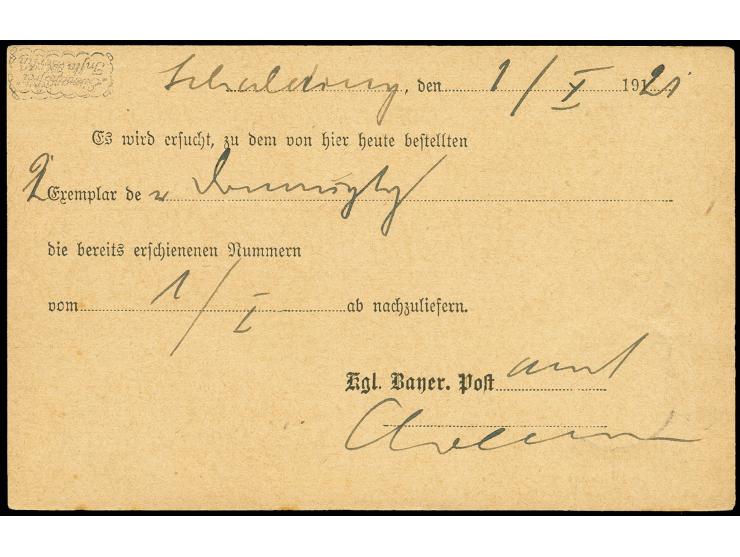 , den 1/I 1921
Es wird ersucht, zu dem von hier heute bestellten
2 Exemplar de r
die bereits erschienenen Nummern
vom 1/I ab nachzuliefern.
Kgl. Bayer. Post amt